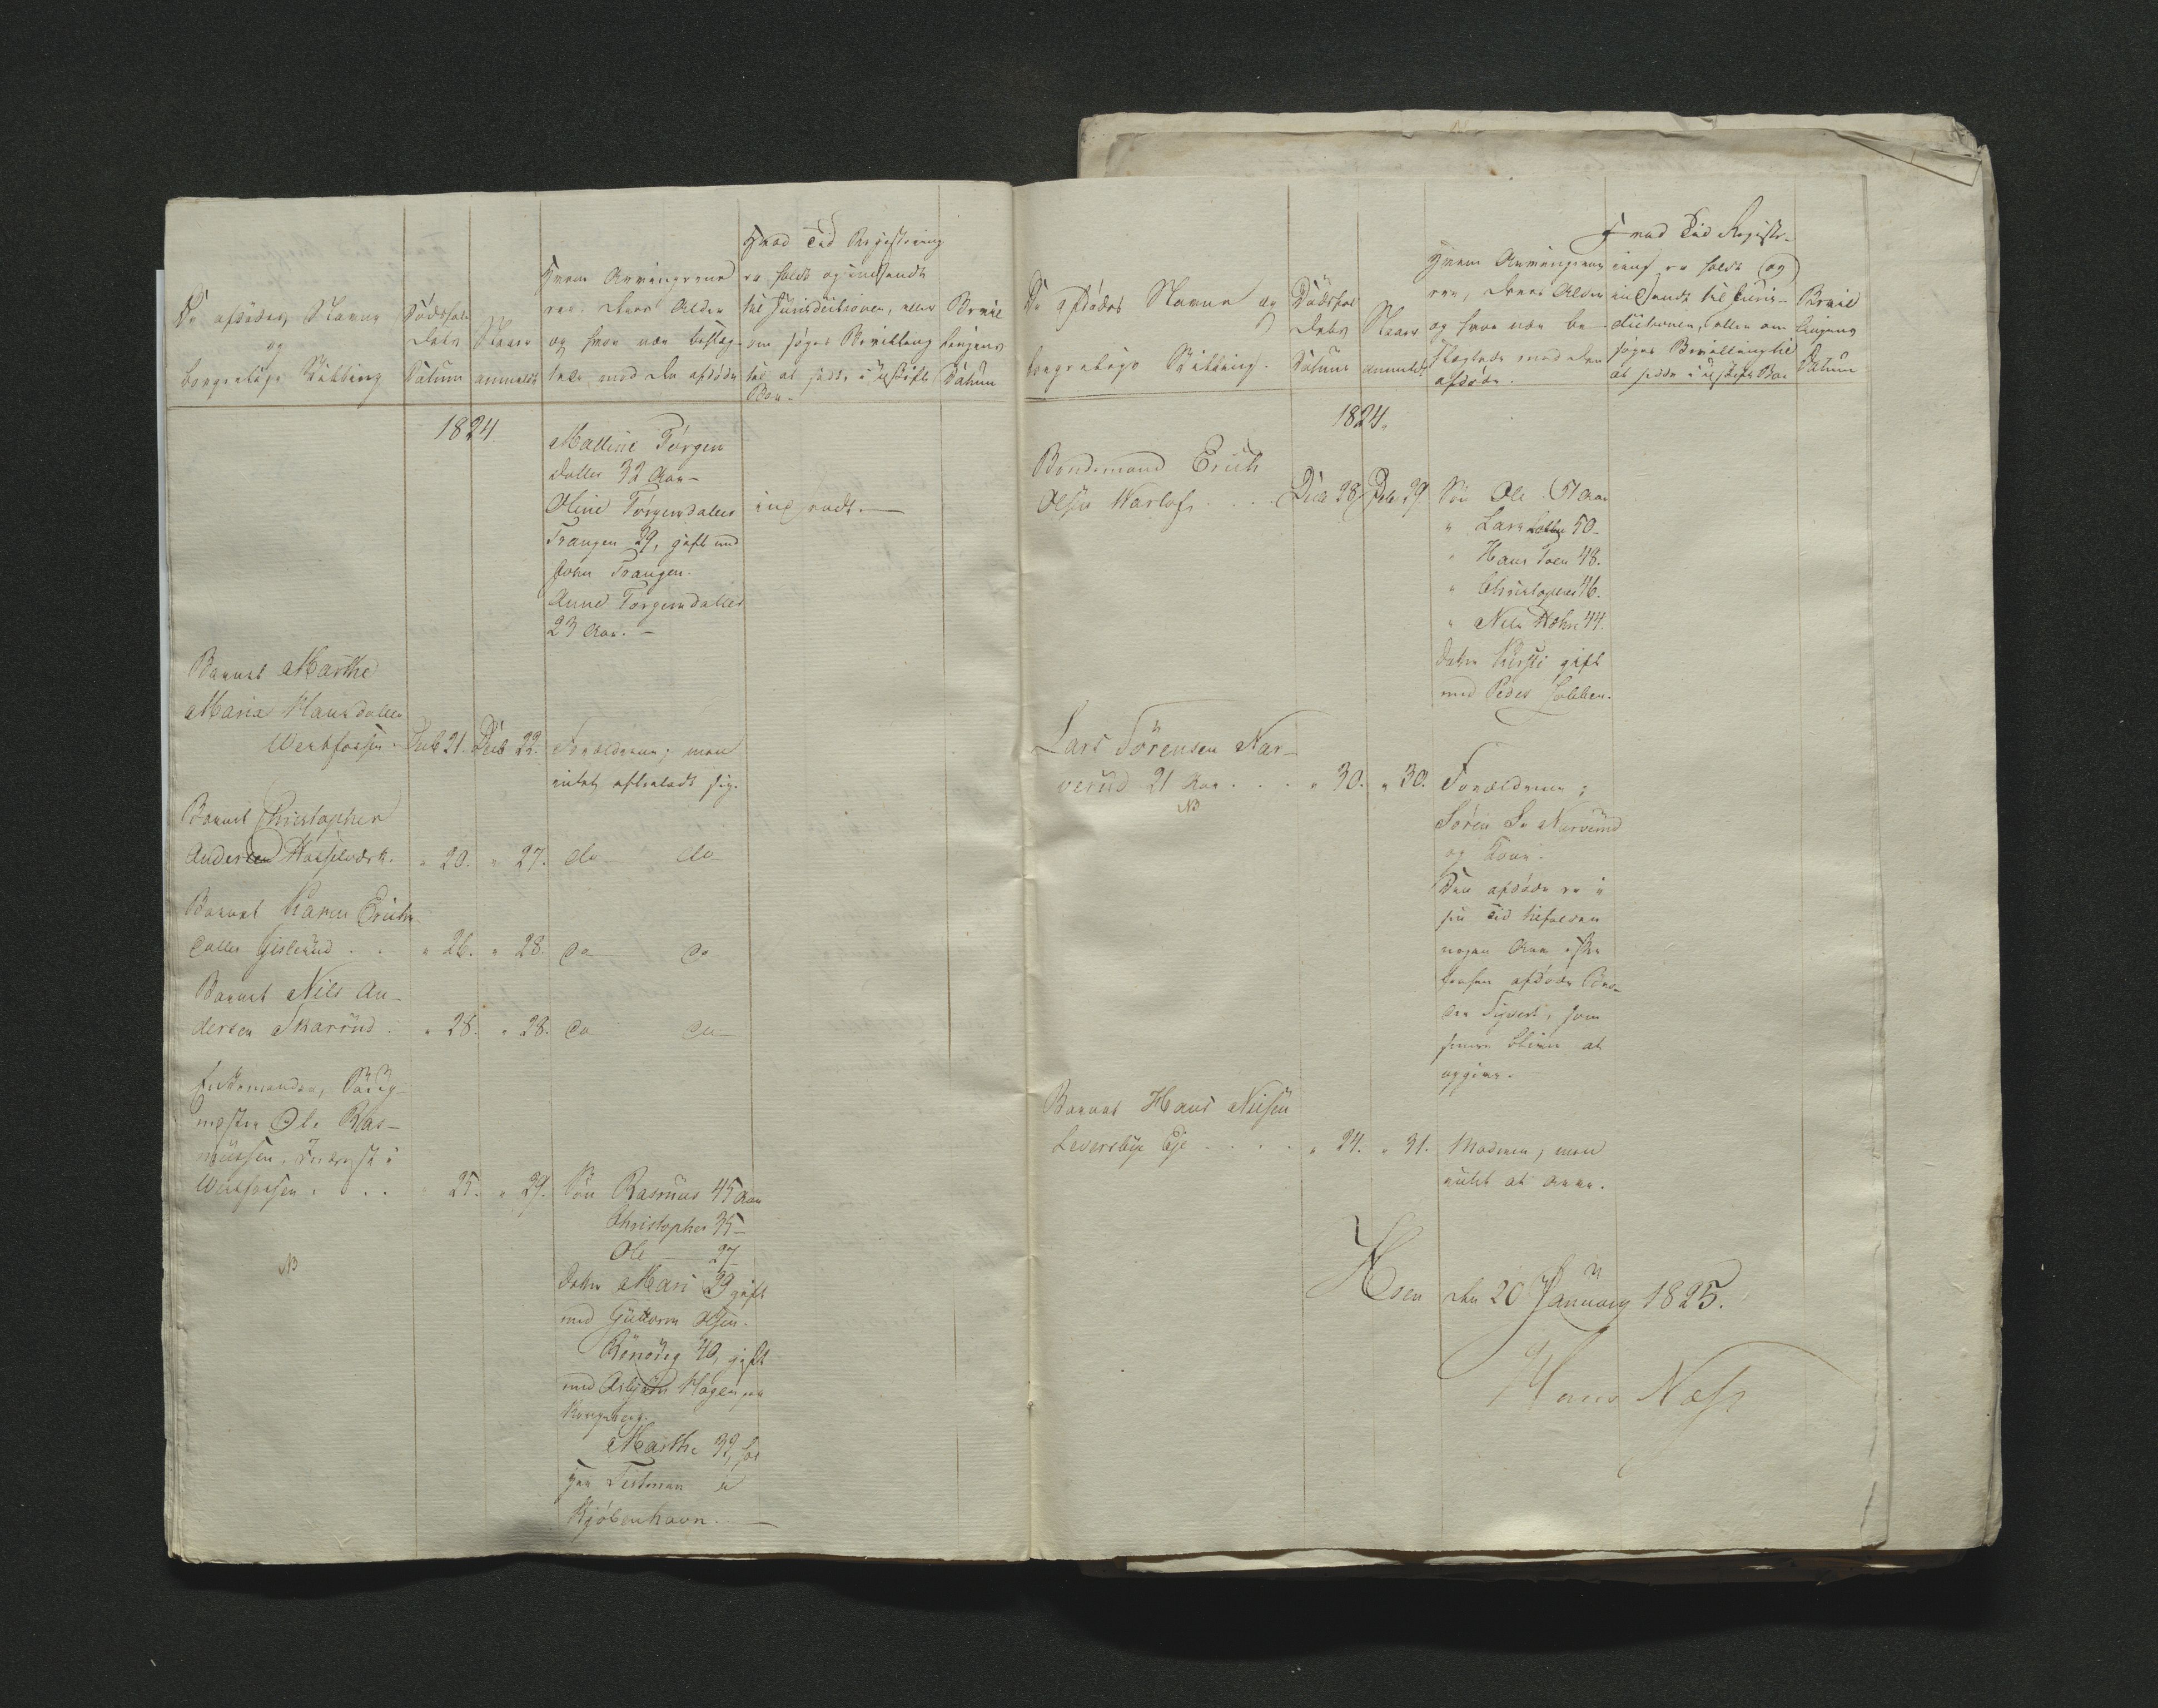 De afdødes Navne
og
borgerlige Stilling
Dødsfal-
dets
Datum
Naar
anmeldt
Hvem Arvingerne
ere, deres Alder
og hvor nær beslæg-
tede med den afdøde
Hvad Tid Registrering
er holdt og indsendt
til Jurisdictionen, eller
om søges Bevilling
til at sidde i uskiftet
Boe-
Bevil-
lingens
Datum
1824
Malline Jörgens
datter 32 Aar-
Oline Jörgensdatter
Trangen 29, gift med
John Trangen.
Anne Jörgensdatter
23 Aar. -
indsendt.
Barnet Marthe
Maria Hansdatter
Werkforsen. Deeb 21. Deeb 22. Forældrene; men
intet efterladt sig.
Barnet Christopher
Andersen Hasselværk. " 20. " 27. do do
Barnet Karen Erichs
datter Gislerud . . " 26. " 28. do do
Barnet Nils An-
dersen Skarüd . " 28. " 28. do do
Enkemanden,
mester Ole Ras-
müssen
. . . " 25. " 29. Sön Rasmus 45 Aar
Christopher 35 -
Ole 27
Datter Mari 39 gift
med Guttorm Olsen.
Rönnöug 40, gift
med Asbjörn Hagen paa
Kongsberg.
Marthe 32,
i
Kjöbenhavn. -
NB
De afdødes Navne og
borgerlige Stilling.
Dødsfal
dets
Datum
Naar
anmeldt
Hvem Arvingerne
ere, deres Alder
og hvor nær be-
slægtede med den
afdøde.
Hvad Tid Registre-
ring er holdt og
indsendt til Juris-
dictionen, eller om
søges Bevilling til
at sidde i uskiftet Boe
Bevil
lingens
Datum
1824.
Bondemand Erich
Olsen Warlofs . . . Deeb 28 Deb. 29 Sön Ole 51 Aar
" Lars 50-
" Hans Foen 48.
" Christopher 46.
" Nils 44.
Datter Kirsti gift
med Peder
Lars Sörensen Nar-
verüd 21 Aar . . . " 30. " 30. Forældrene;
NB
Sören Narverüd
og Kone.
Den afdøde er i
sin Tid tilfalden
nogen Arv efter
hans afdøde
som
at
opgive.
Barnet Hans Nilsen
Leversbye Eje - . . . " 24. " 31. Moderen, men
intet at arve.
Hoen den 20 Januarij 1825.
Hans Næss